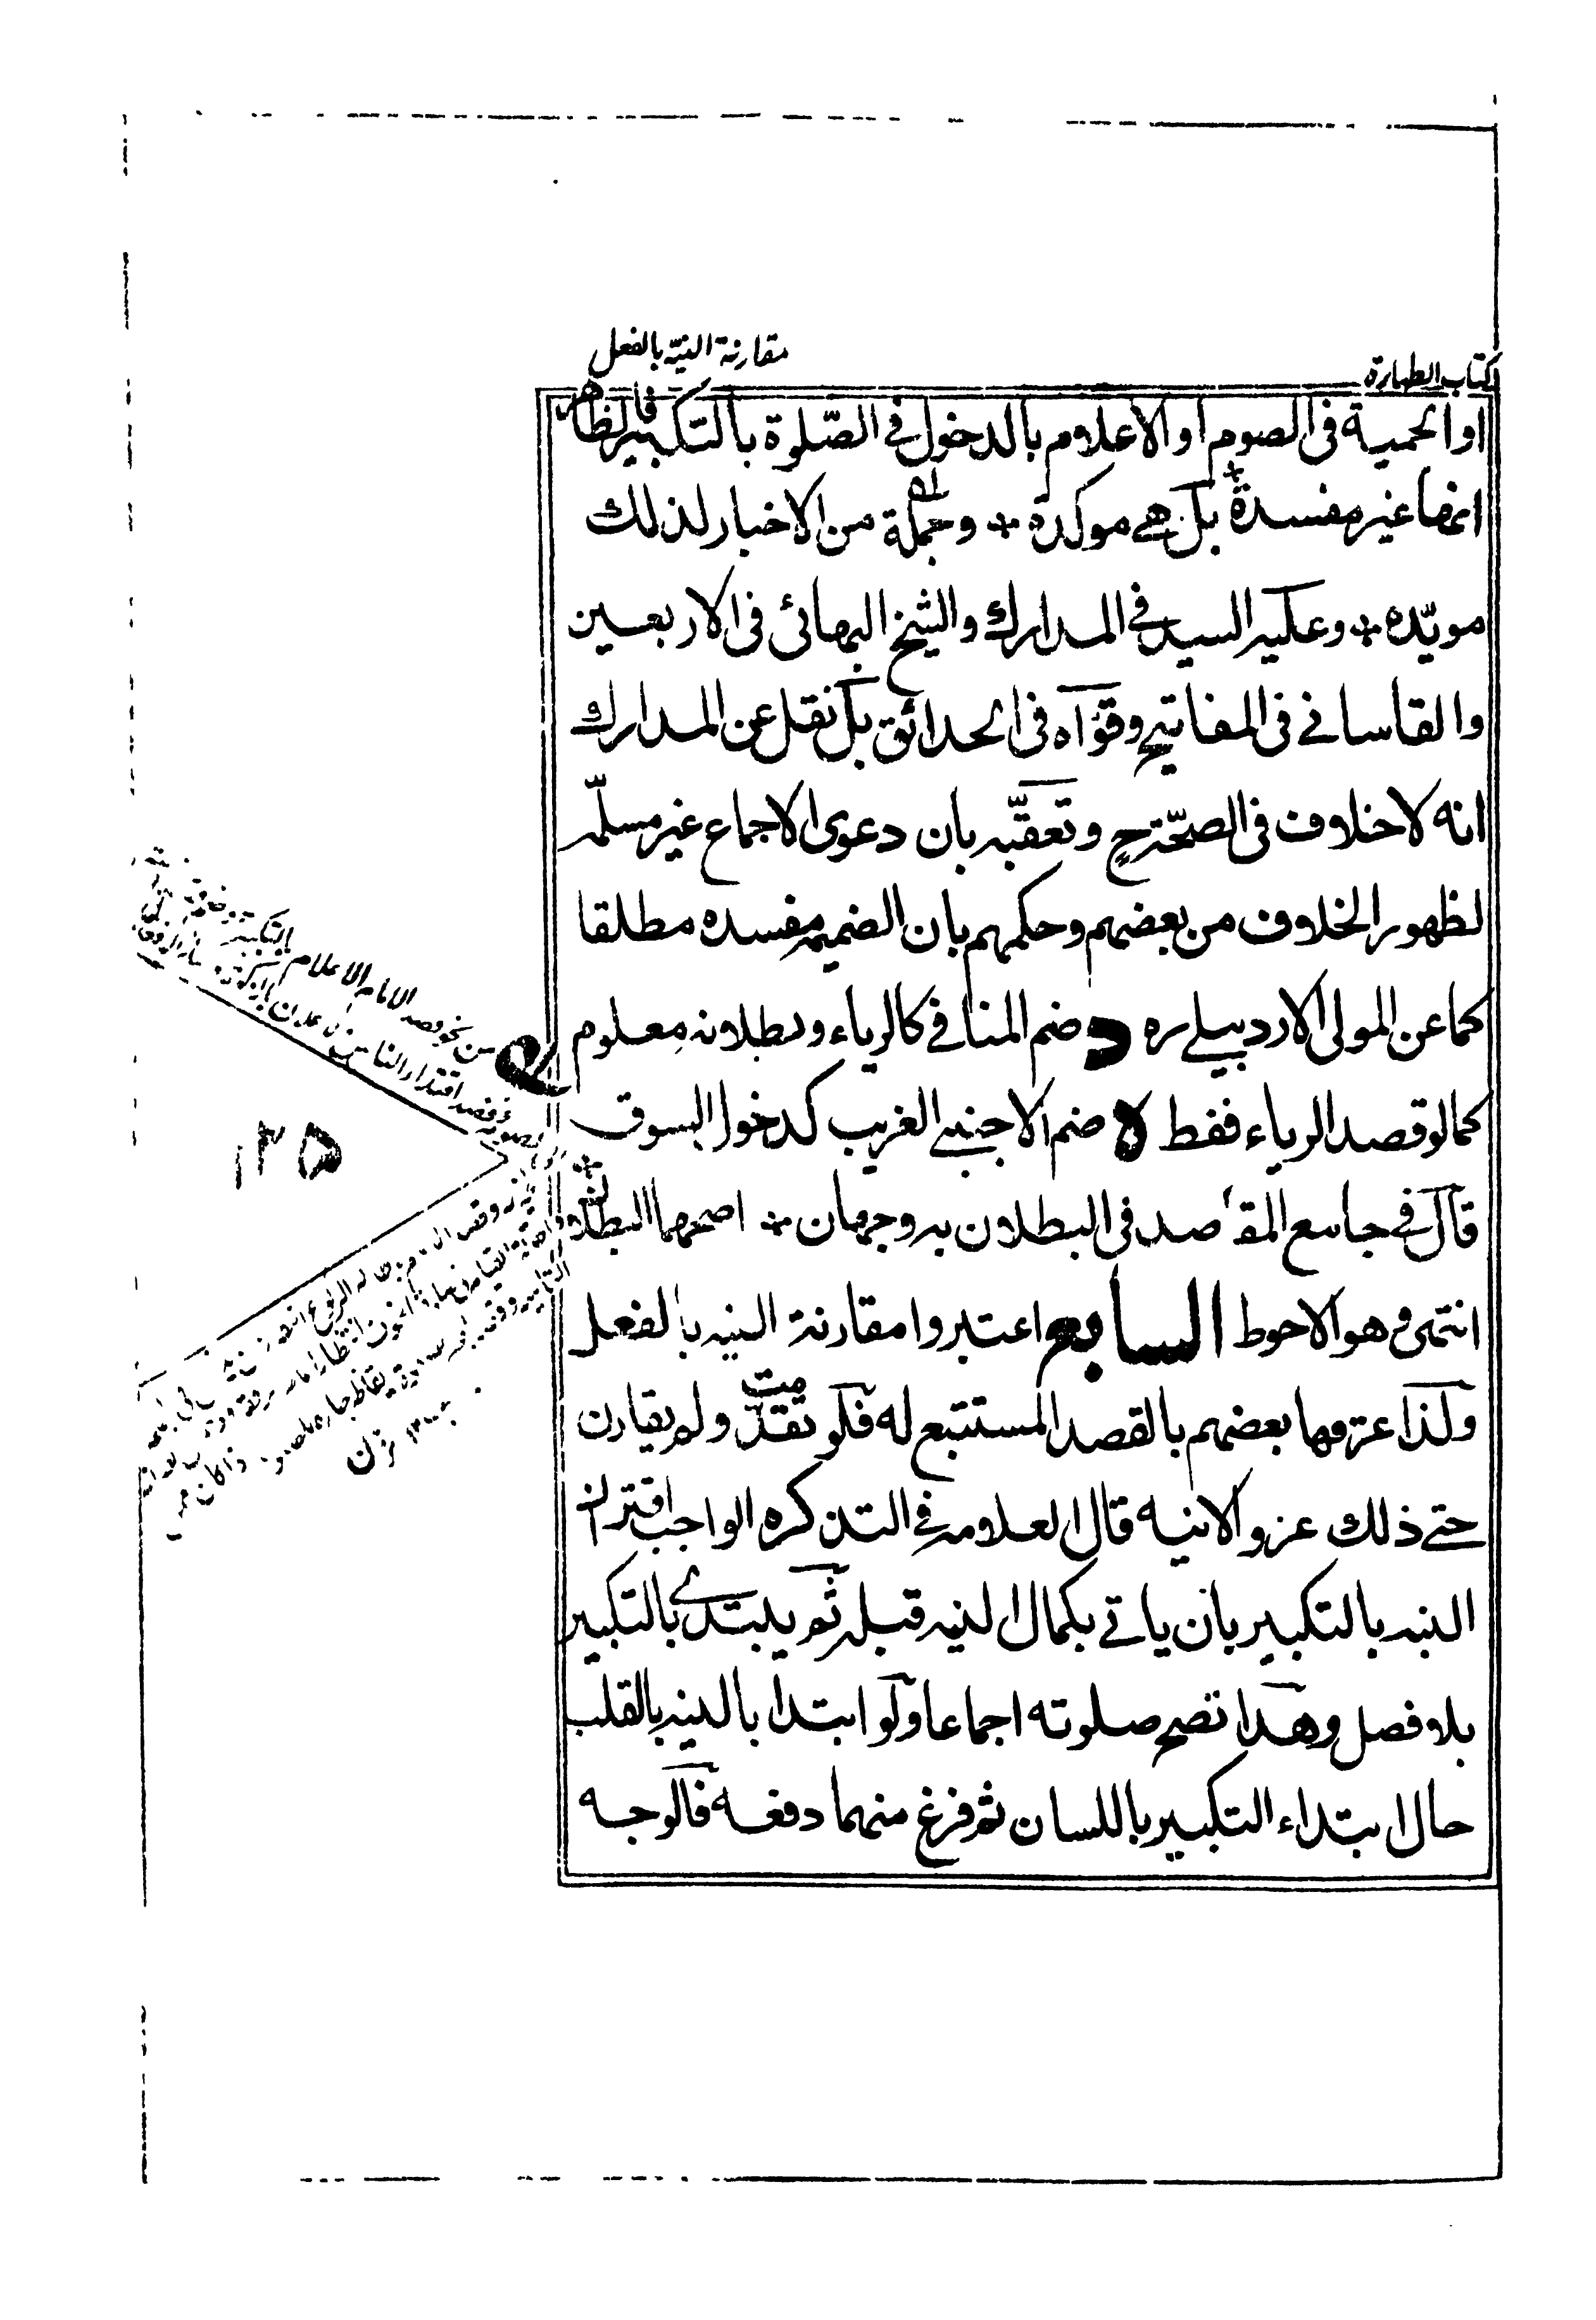 كتاب الطهارة
مقارنة النيّه بالفعل
او الحمية فى الصوم او الاعلام بالدخول فى الصّلوة بالتكبير فالظاهر
انها غير مفسدة بل هى موكدة وجملة من الاخبار لذلك
مويّده وعليه السيد فى المدارك والشيخ البهائى فى الاربعين
والقاسانى فى المفاتيح وقوّاه فى الحدائق بل نقل عن المدارك
انه لا خلاف فى الصحّة ح وتعقّبه بان دعوى الاجماع غير مسلّمه
لظهور الخلاف من بعضهم وحكمهم بان الضميمه مفسده مطلقا
كما عن المولى الاردبيلى ره د ضم المنافى كالرياء وبطلانه معلوم
كما لو قصد الرياء فقط ه ضم الاجنبى الغريب كدخول السوق
قال فى جامع المقاصد فى البطلان به وجهان اصحهما البطلان
انتهى وهو الاحوط السابع اعتبروا مقارنة النيه بالفعل
ولذا عرفها بعضهم بالقصد المستتبع له فلو تقدمت ولم يقارن
حتى ذلك عزو الانيه قال العلامه فى التذكره الواجب اقتران
النيه بالتكبير بان ياتى بكمال النيه قبله ثم يبتدى بالتكبير
بلا فصل وهذا تصح صلوته اجماعا ولو ابتدا بالنيه بالقلب
حال ابتداء التكبير باللسان ثم فرغ منهما دفعه فالوجه
من نحو قصد الامام الاعلام بالتكبير
قصد اقتداء الناس
١٢٥